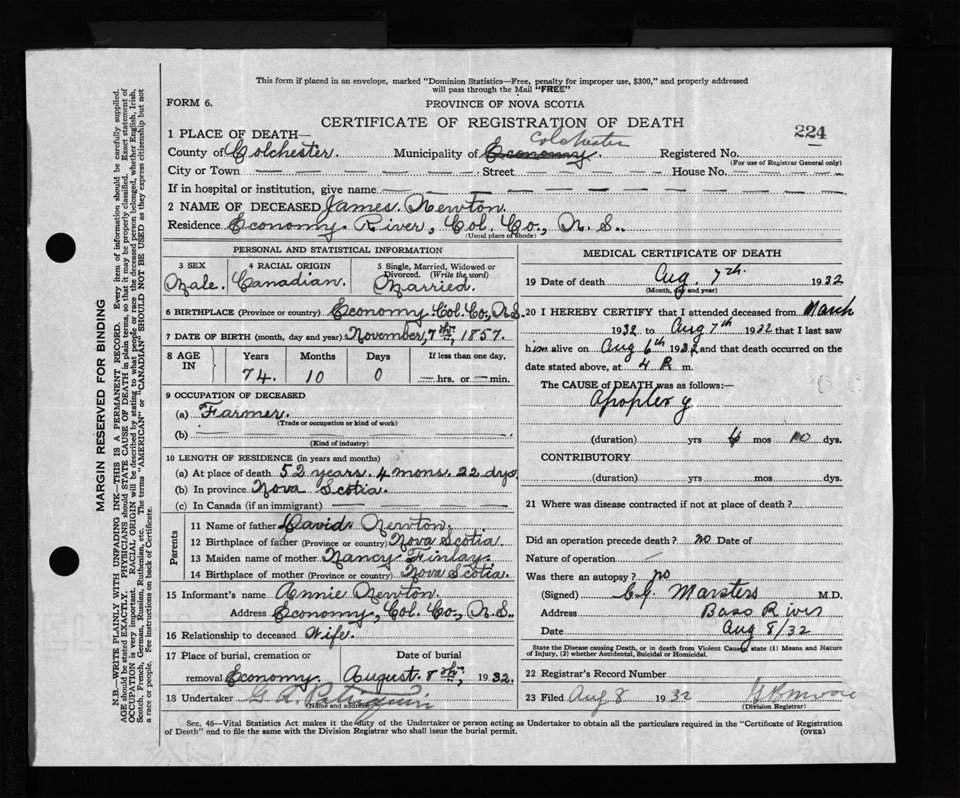 This form if placed in an envelope, marked "Dominion Statistics—Free, penalty for improper use, $300," and properly addressed
will pass through the Mail "FREE"
FORM 6. PROVINCE OF NOVA SCOTIA
CERTIFICATE OF REGISTRATION OF DEATH 224
1 PLACE OF DEATH— Colchester
County of Colchester. Municipality of Economy. Registered No.
(For use of Registrar General only)
City or Town — Street — House No. —
If in hospital or institution, give name —
2 NAME OF DECEASED James Newton.
Residence Economy River, Col. Co., N. S.
(Usual place of abode)
PERSONAL AND STATISTICAL INFORMATION
3 SEX 4 RACIAL ORIGIN 5 Single, Married, Widowed or
Divorced. (Write the word)
Male. Canadian. Married.
6 BIRTHPLACE (Province or country) Economy Col. Co., N.S.
7 DATE OF BIRTH (month, day and year) November, 7th, 1857.
8 AGE IN Years Months Days If less than one day,
74. 10 0 — hrs. or — min.
9 OCCUPATION OF DECEASED
(a) Farmer.
(Trade or occupation or kind of work)
(b) —
(Kind of industry)
10 LENGTH OF RESIDENCE (in years and months)
(a) At place of death 52 years. 4 mons. 22 dys
(b) In province Nova Scotia.
(c) In Canada (if an immigrant) —
Parents
11 Name of father David Newton.
12 Birthplace of father (Province or country) Nova Scotia
13 Maiden name of mother Nancy Finlay.
14 Birthplace of mother (Province or country) Nova Scotia.
15 Informant's name Annie Newton.
Address Economy, Col. Co., N.S.
16 Relationship to deceased Wife.
17 Place of burial, cremation or Date of burial
removal Economy. August. 8th, 1932.
18 Undertaker G. R.
(Name and address)
MEDICAL CERTIFICATE OF DEATH
19 Date of death Aug. 7th. 1932
(Month, day and year)
20 I HEREBY CERTIFY that I attended deceased from March
1932 to Aug 7th 1932 that I last saw
him alive on Aug 6th 1932 and that death occurred on the
date stated above, at 4 P. m.
The CAUSE of DEATH was as follows:—
Apoplexy
(duration) yrs 4 mos 10 dys.
CONTRIBUTORY
(duration) yrs mos dys.
21 Where was disease contracted if not at place of death?
Did an operation precede death? no Date of
Nature of operation
Was there an autopsy? no
(Signed) Marsters M.D.
Address Bass River
Date Aug 8/32
State the Disease causing Death, or in death from Violent Causes, state (1) Means and Nature
of Injury, (2) whether Accidental, Suicidal or Homicidal.
22 Registrar's Record Number
23 Filed Aug 8 1932
(Division Registrar)
Sec. 46—Vital Statistics Act makes it the duty of the Undertaker or person acting as Undertaker to obtain all the particulars required in the "Certificate of Registration
of Death" and to file the same with the Division Registrar who shall issue the burial permit. (OVER)
MARGIN RESERVED FOR BINDING
N.B.—WRITE PLAINLY WITH UNFADING INK—THIS IS A PERMANENT RECORD. Every item of information should be carefully supplied.
AGE should be stated EXACTLY. PHYSICIANS should STATE CAUSE OF DEATH in plain terms, so that it may be properly classified. Exact statement of
OCCUPATION is very important. RACIAL ORIGIN will be described by stating to what people or race the deceased person belonged, whether English, Irish,
Scotch, French, German, Russian, Ruthenian, etc. The terms "AMERICAN" or "CANADIAN" SHOULD NOT BE USED as they express citizenship but not
a race or people. See instructions on back of Certificate.